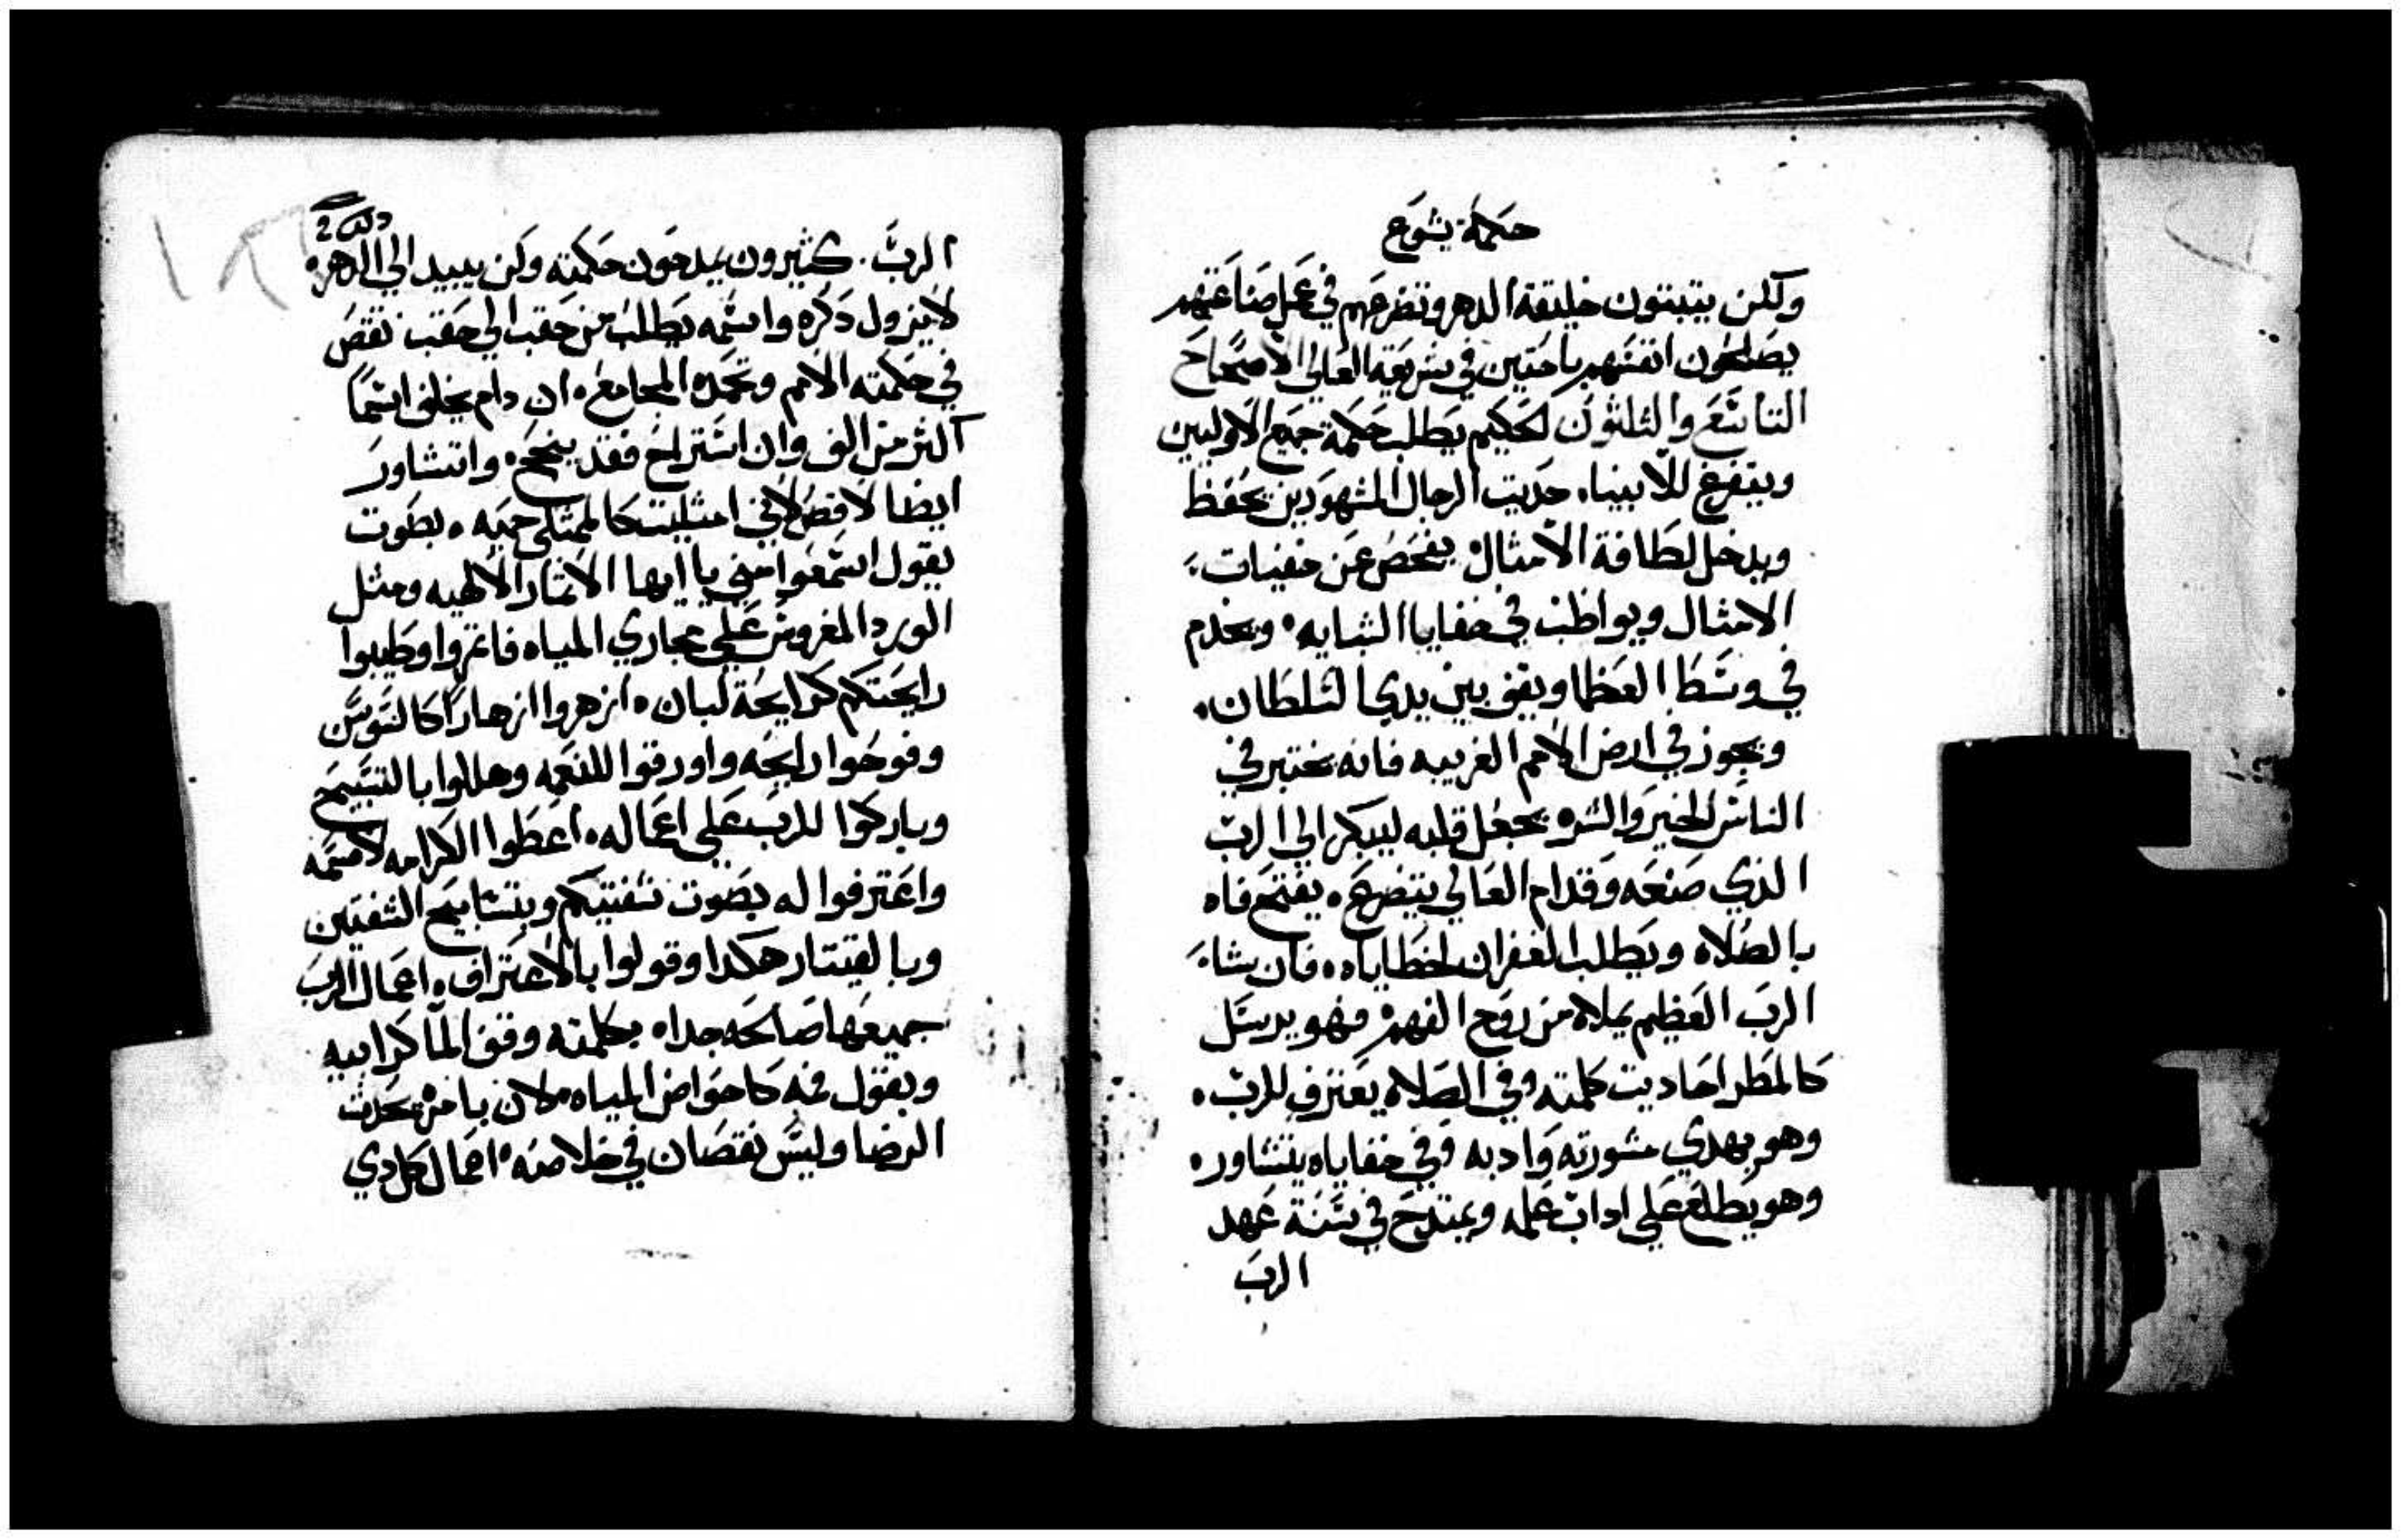 حكمة يشوع
ولكن يتبتون خليقة الدهر وتضرعهم في عمل صناعتهم
يصلحون انفسهم باحتين في شريعة العالي الاصحاح
التاسع والثلثون الحكيم يطلب حكمة جميع الاولين
ويتفرغ للانبياء حديت الرجال المشهودين يحفظ
ويدخل لطافة الامثال يفحص عن خفيات
الامثال ويواظب في خفايا الشايه ويخدم
في وسط العظما ويقف بين يدي السلطان
ويجوز في ارض الامم الغريبه فانه يختبر في
الناس الخير والشر يجعل قلبه ليبكر الي الرب
الذي صنعه وقدام العالي يتضرع يفتح فاه
بالصلاه ويطلب الغفران لخطاياه فان يشاء
الرب العظيم يملاه من روح الفهم فهو يرسل
كالمطر احاديت كلمته وفي الصلاه يعترف للرب
وهو يهدي مشورته وادبه وفي خفاياه يتشاور
وهو يطلع علي اداب علمه ويمتدح في سنة عهد
الرب
الرب كثيرون يمدحون حكمته ولن يبيد الي الدهر
لا يزول ذكره واسمه يطلب من حقب الي حقب تقص
في حكمته الامم وتحمده المجامع ان دام يخلف اسماً
اكثر من الف وان استراح فقد ينجح واتشاور
ايضا لاقص لاني امتليت كالممتلي حميه بصوت
يقول اسمعوا مني يا ايها الاثمار الالهيه ومثل
الورد المغروس علي مجاري المياه فاثمروا وطيبوا
رايحتكم كرايحة لبان ازهروا ازهاراً كالسوسن
وفوحوا رايحه واورقوا للنعمه وهللوا بالتسبيح
وباركوا للرب علي اعماله اعطوا الكرامه لاسمه
واعترفوا له بصوت شفتيكم وبتسابيح الشفتين
وبالقيتار هكدا وقولوا بالاعتراف اعمال الرب
جميعها صالحه جدا بكلمته وقف الما كرابيه
وبقول فمه كاحواض المياه لان بامره يحدث
الرضا وليس نقصان في خلاصه اعمال كل دي